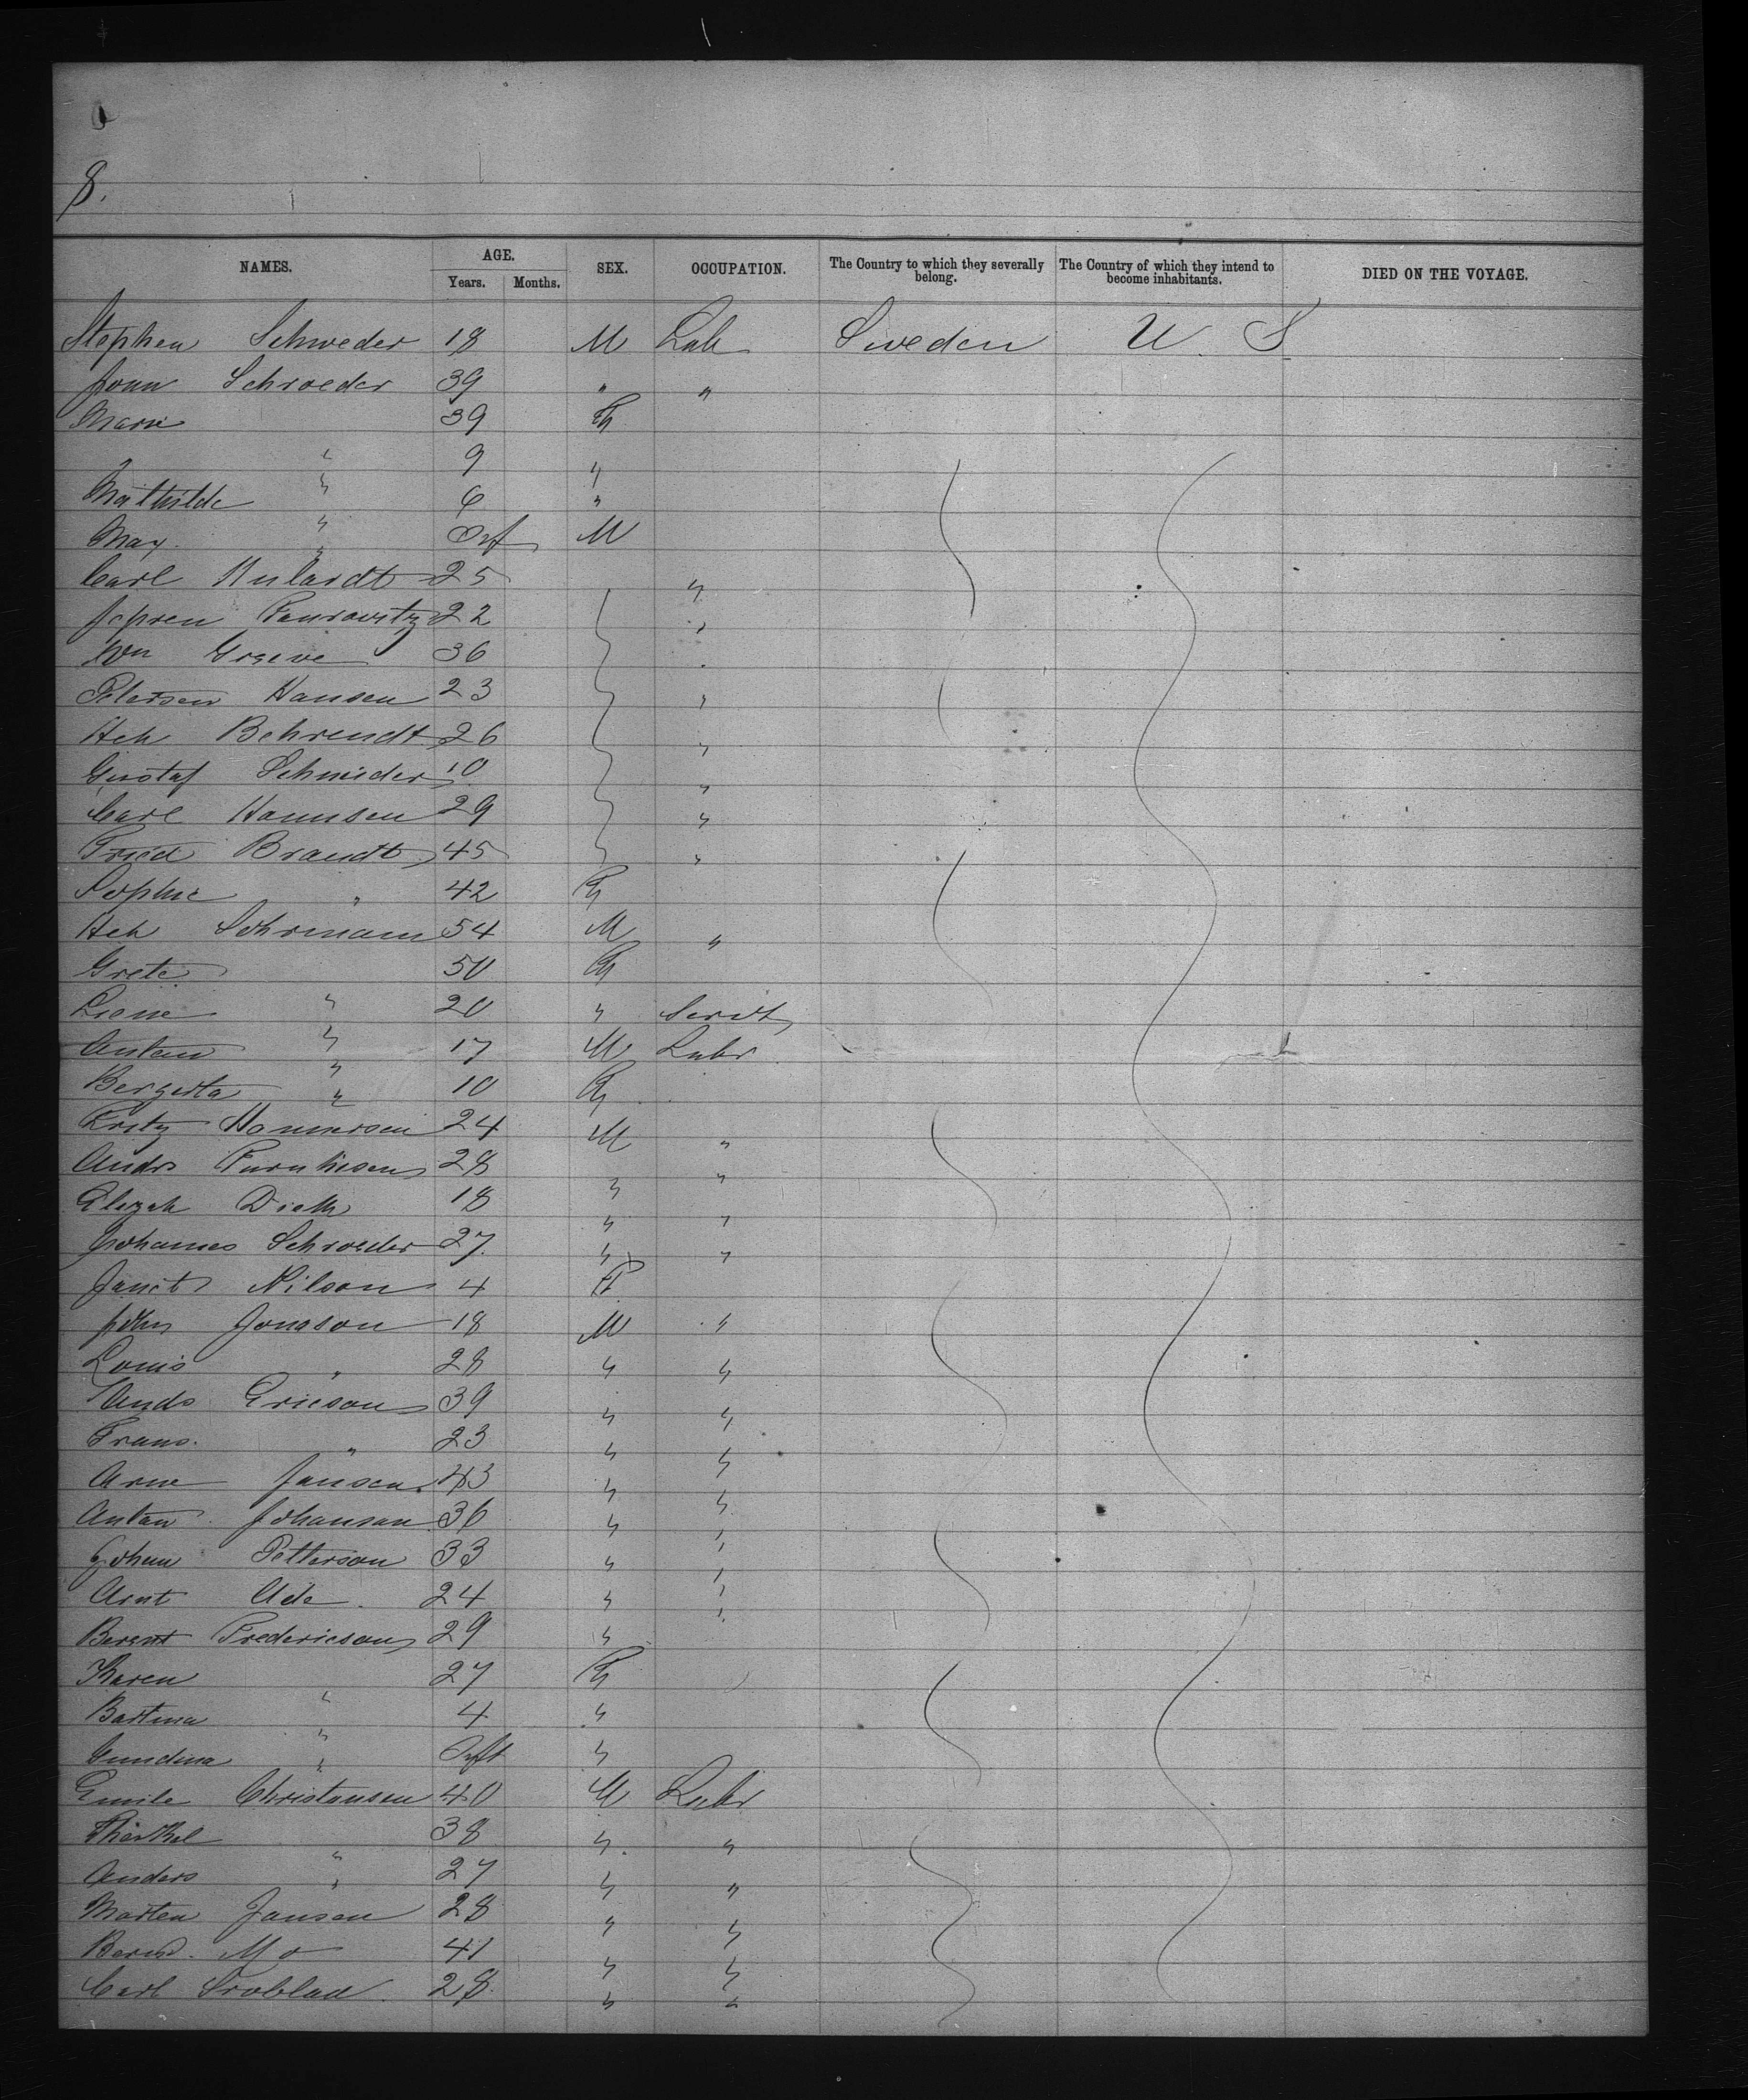 8.
NAMES. AGE. SEX. OCCUPATION. The Country to which they severally belong. The Country of which they intend to become inhabitants. DIED ON THE VOYAGE.
Years. Months.
Stephen Schweder 18 M Lab Sweden U. S
Joun Schroeder 39 " "
Marie 39 F
" 9 "
Mathilde " 6 "
Max " Inf M
Carl 25 "
22 "
Wm Greeve 36 "
Petersen Hansen 23 "
Hch Behrendt 26 "
Gustaf Schneider 10 "
Carl Hannsen 29 "
Fried Brandt 45 "
Sophie " 42 F
Hch Sohrmann 54 M "
Grete " 50 F
20 " Servt
Anton " 17 M Labr
Bergetta " 10 F
Fritz Hannersen 24 M "
Andr 28 " "
Elizah Dieth 18 " "
Johannes Schroeder 27 " "
Janet Nilson 4 F
John Jonason 18 M "
Louis " 28 " "
Ands Ericson 39 " "
Frans. " 23 " "
Arne Jansen 43 " "
Anton Johanson 36 " "
Johan Petterson 33 " "
Arnt Ade 24 " "
Berent Fredericson 29 "
Karen " 27 F
Bartina " 4 "
Gundina " Inft "
Emile Christansen 40 M Labr
Thorkel " 38 " "
Anders " 27 " "
Marten Jansen 28 " "
Bernd. Mo 41 " "
Carl Froblad 28 " "